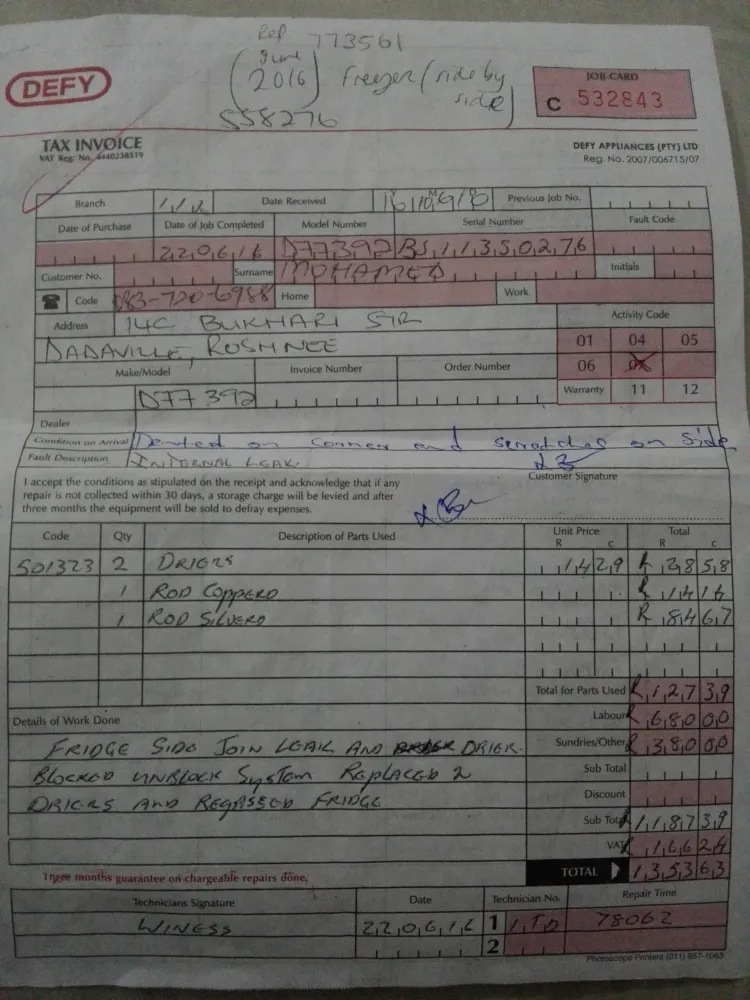 Ref 773561
June
(2016) Freezer (side by side)
558276
DEFY
JOB CARD
C 532843
TAX INVOICE
VAT Reg. No. 4440238519
DEFY APPLIANCES (PTY) LTD
Reg. No. 2007/006715/07
Branch Date Received Previous Job No.
Date of Purchase Date of Job Completed Model Number Serial Number Fault Code
22,0,6,1,6 D77392 BS,1,1,3,5,0,2,7,6
Customer No. Surname MOHAMED Initials
Code 083-720-6988 Home Work
Address 14C BUKHARI STR Activity Code
DADAVILLE, ROSHNEE 01 04 05
Make/Model Invoice Number Order Number 06
D77392 Warranty 11 12
Dealer
Condition on Arrival Dented on corner and scratches on side
Fault Description INTERNAL LEAK
I accept the conditions as stipulated on the receipt and acknowledge that if any
repair is not collected within 30 days, a storage charge will be levied and after
three months the equipment will be sold to defray expenses.
Customer Signature
Code Qty Description of Parts Used Unit Price Total
R c R c
501323 2 DRIERS 14 29 R 28 58
1 ROD COPPERD R 14 14
1 ROD SILVERD R 84 67
Total for Parts Used R 127 39
Details of Work Done Labour R 680 00
FRIDGE SIDE JOIN LEAK AND DRIER Sundries/Other R 380 00
BLOCKED UNBLOCK SYSTEM REPLACED 2 Sub Total
DRIERS AND REGASSED FRIDGE Discount
Sub Total R 1187 39
VAT R 166 24
Three months guarantee on chargeable repairs done. TOTAL 1353 63
Technicians Signature Date Technician No. Repair Time
WINESS 22,0,6,1,6 1 78062
2
Photoscope Printers (011) 857-1063